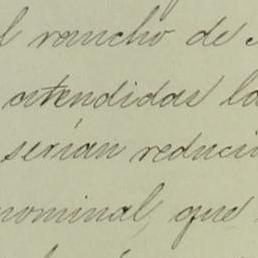 l rancho de
atendidas la
serían reduci
nominal, que